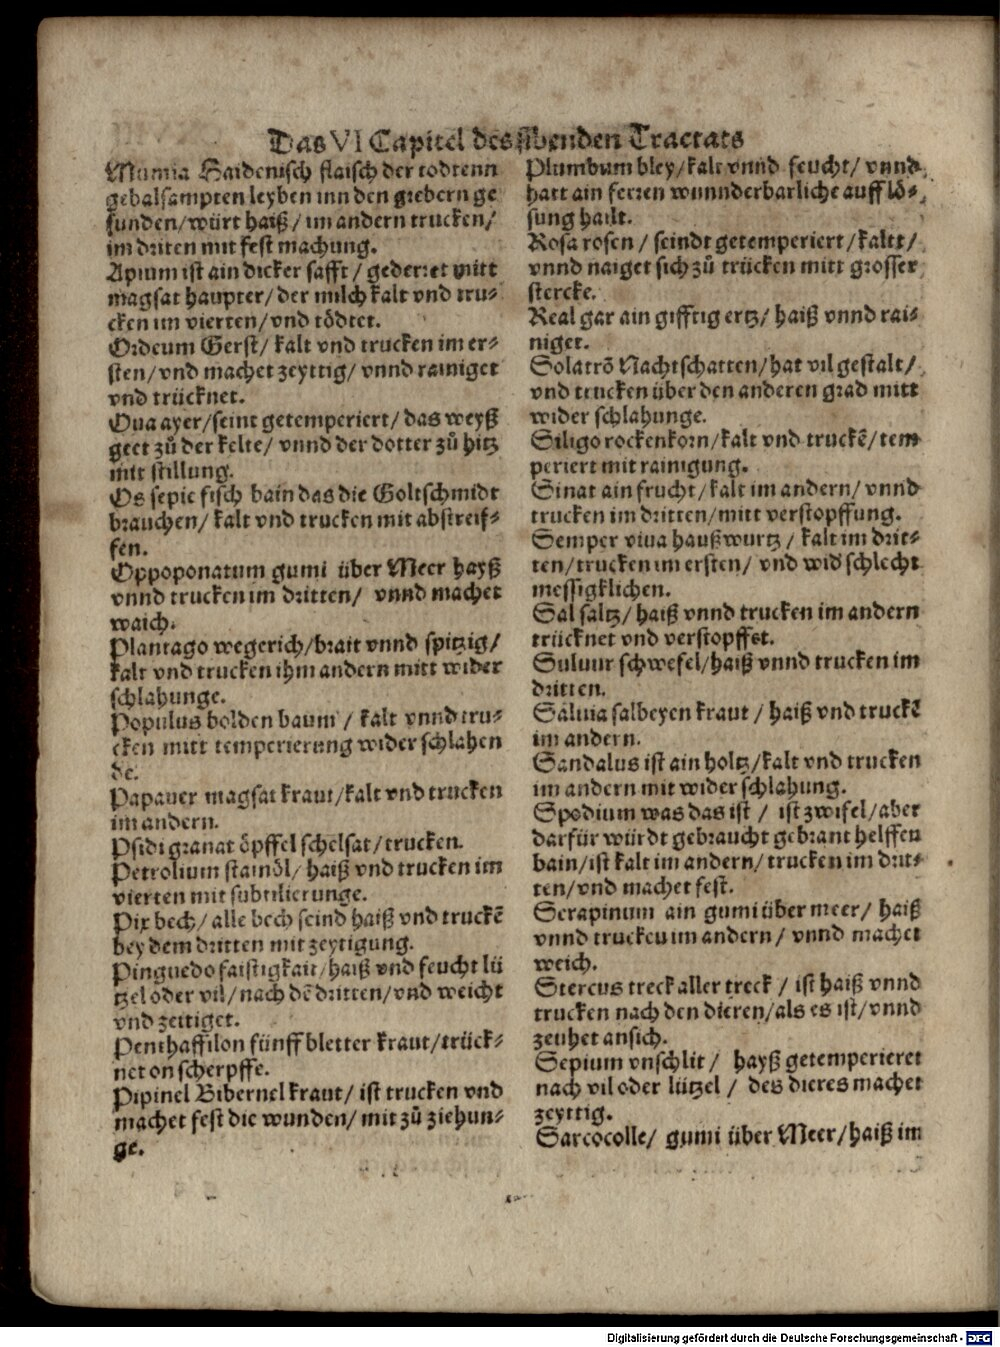 Das VI Capitel des sibenden Tractats
Mumia Haidenisch flaisch der todtenn
gebalsampten leyben inn den grebern ge
funden/würt haiß/im andern trucken/
im driten mit fest machung.
Apium ist ain dicker safft/gederret mitt
magsat haupter/der milch kalt vnd tru⸗
cken im vierten/vnd tödtet.
Ordeum Gerst/kalt vnd trucken im er⸗
sten/vnd machet zeyttig/vnnd rainiget
vnd trücknet.
Oua ayer/seint getemperiert/das weyß
geet zů der kelte/vnnd der dotter zů hitz
mit stillung.
Os sepie fisch bain das die Goltschmidt
brauchen/kalt vnd trucken mit abstreif⸗
fen.
Oppoponatum gumi über Meer hayß
vnnd trucken im dritten/ vnnd machet
waich.
Plantago wegerich/brait vnnd spitzig/
kalt vnd trucken ihm andern mitt wider
schlahunge.
Populus bolden baum/ kalt vnnd tru⸗
cken mitt temperierung wider schlahen
de.
Papauer magsat kraut/kalt vnd trucken
im andern.
Psidi granat öpffel schelsat/trucken.
Petrolium stainöl/haiß vnd trucken im
vierten mit subtilierunge.
Pix bech/alle bech seind haiß vnd truckē
bey dem dritten mit zeytigung.
Pinguedo faistigkait/haiß vnd feucht lü
tzel oder vil/nach dē dritten/vnd weicht
vnd zeitiget.
Penthaffilon fünff bletter kraut/trück⸗
net on scherpffe.
Pipinel Bibernel kraut/ist trucken vnd
machet fest die wunden/mit zů ziehun⸗
ge.
Plumbum bley/kalt vnnd feucht/vnnd
hatt ain ferren wunnderbarliche aufflö⸗
sung hailt.
Rosa rosen/seindt getemperiert/kaltt/
vnnd naiget sich zů trücken mitt grosser
stercke.
Real gar ain gifftig ertz/haiß vnnd rai⸗
niget.
Solatrō Nachtschatten/hat vil gestalt/
vnd trucken über den anderen grad mitt
wider schlahunge.
Siligo rockenkorn/kalt vnd truckē/tem
periert mit rainigung.
Sinat ain frucht/kalt im andern/vnnd
trucken im dritten/mitt verstopffung.
Semper viua haußwurtz/kalt im drit⸗
ten/trucken im ersten/ vnd wid schlecht
messigklichen.
Sal saltz/haiß vnnd trucken im andern
trücknet vnd verstopffet.
Suluur schwefel/haiß vnnd trucken im
dritten.
Saluia salbeyen kraut/haiß vnd truckē
im andern.
Sandalus ist ain holtz/kalt vnd trucken
im andern mit wider schlahung.
Spodium was das ist/ ist zwifel/aber
darfür würdt gebraucht gebrant helffen
bain/ist kalt im andern/trucken im drit⸗
ten/vnd machet fest.
Serapinum ain gumi über meer/ haiß
vnnd truckeu im andern/ vnnd machet
weich.
Stercus treck aller treck/ ist haiß vnnd
trucken nach den dieren/als es ist/vnnd
zeuhet an sich.
Sepium vnschlit/ hayß getemperieret
nach vil oder lützel/ des dieres machet
zeyttig.
Sarcocolle/ gumi über Meer/haiß im
Digitalisierung gefördert durch die Deutsche Forschungsgemeinschaft - DFG